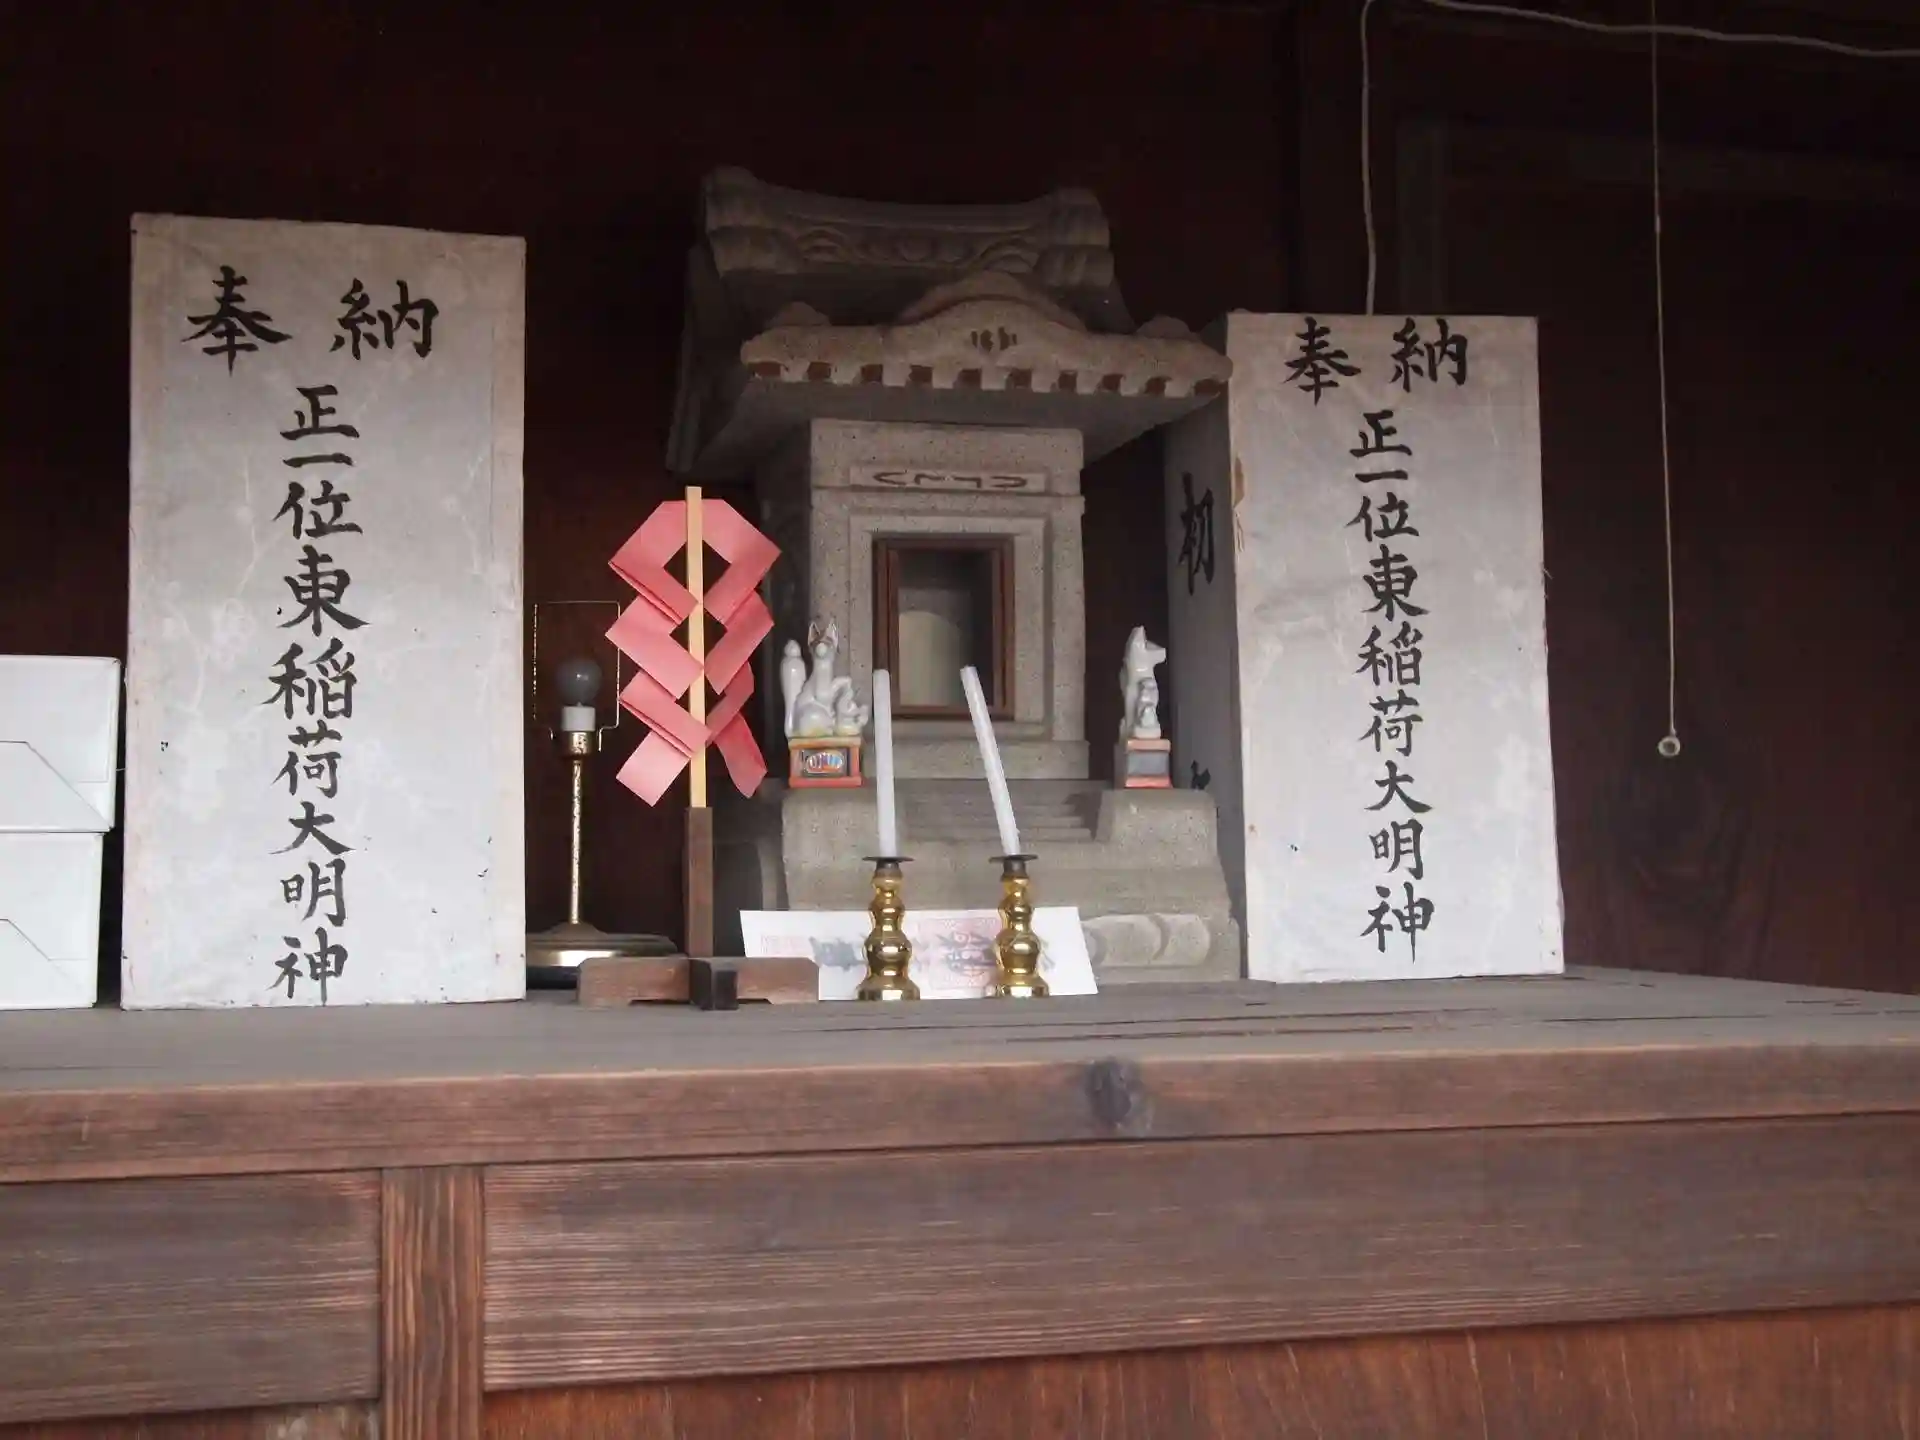 奉納
正一位東稲荷大明神
奉納
正一位東稲荷大明神
初